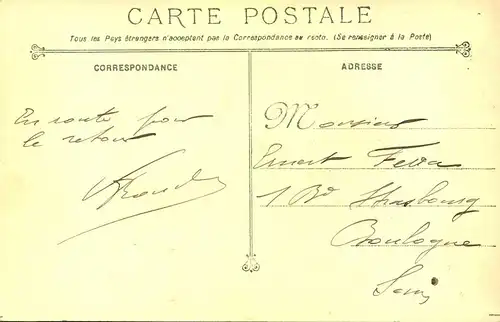 CARTE POSTALE
Tous les Pays étrangers n'acceptent pas la Correspondance au recto. (Se renseigner à la Poste)
CORRESPONDANCE
En route pour
le retour
ADRESSE
Monsieur
Ernest
1 Bd Strasbourg
Boulogne